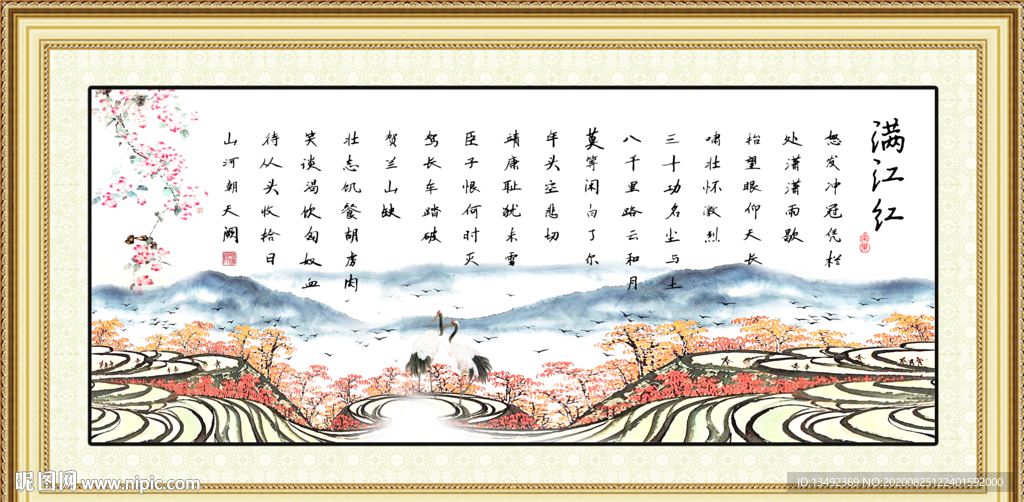 满江红
怒发冲冠凭栏
处潇潇雨歇
抬望眼仰天长
啸壮怀激烈
三十功名尘与土
八千里路云和月
莫等闲白了少
年头空悲切
靖康耻犹未雪
臣子恨何时灭
驾长车踏破
贺兰山缺
壮志饥餐胡虏肉
笑谈渴饮匈奴血
待从头收拾旧
山河朝天阙
昵图网 www.nipic.com
ID:13492369 NO:20200825122401592000